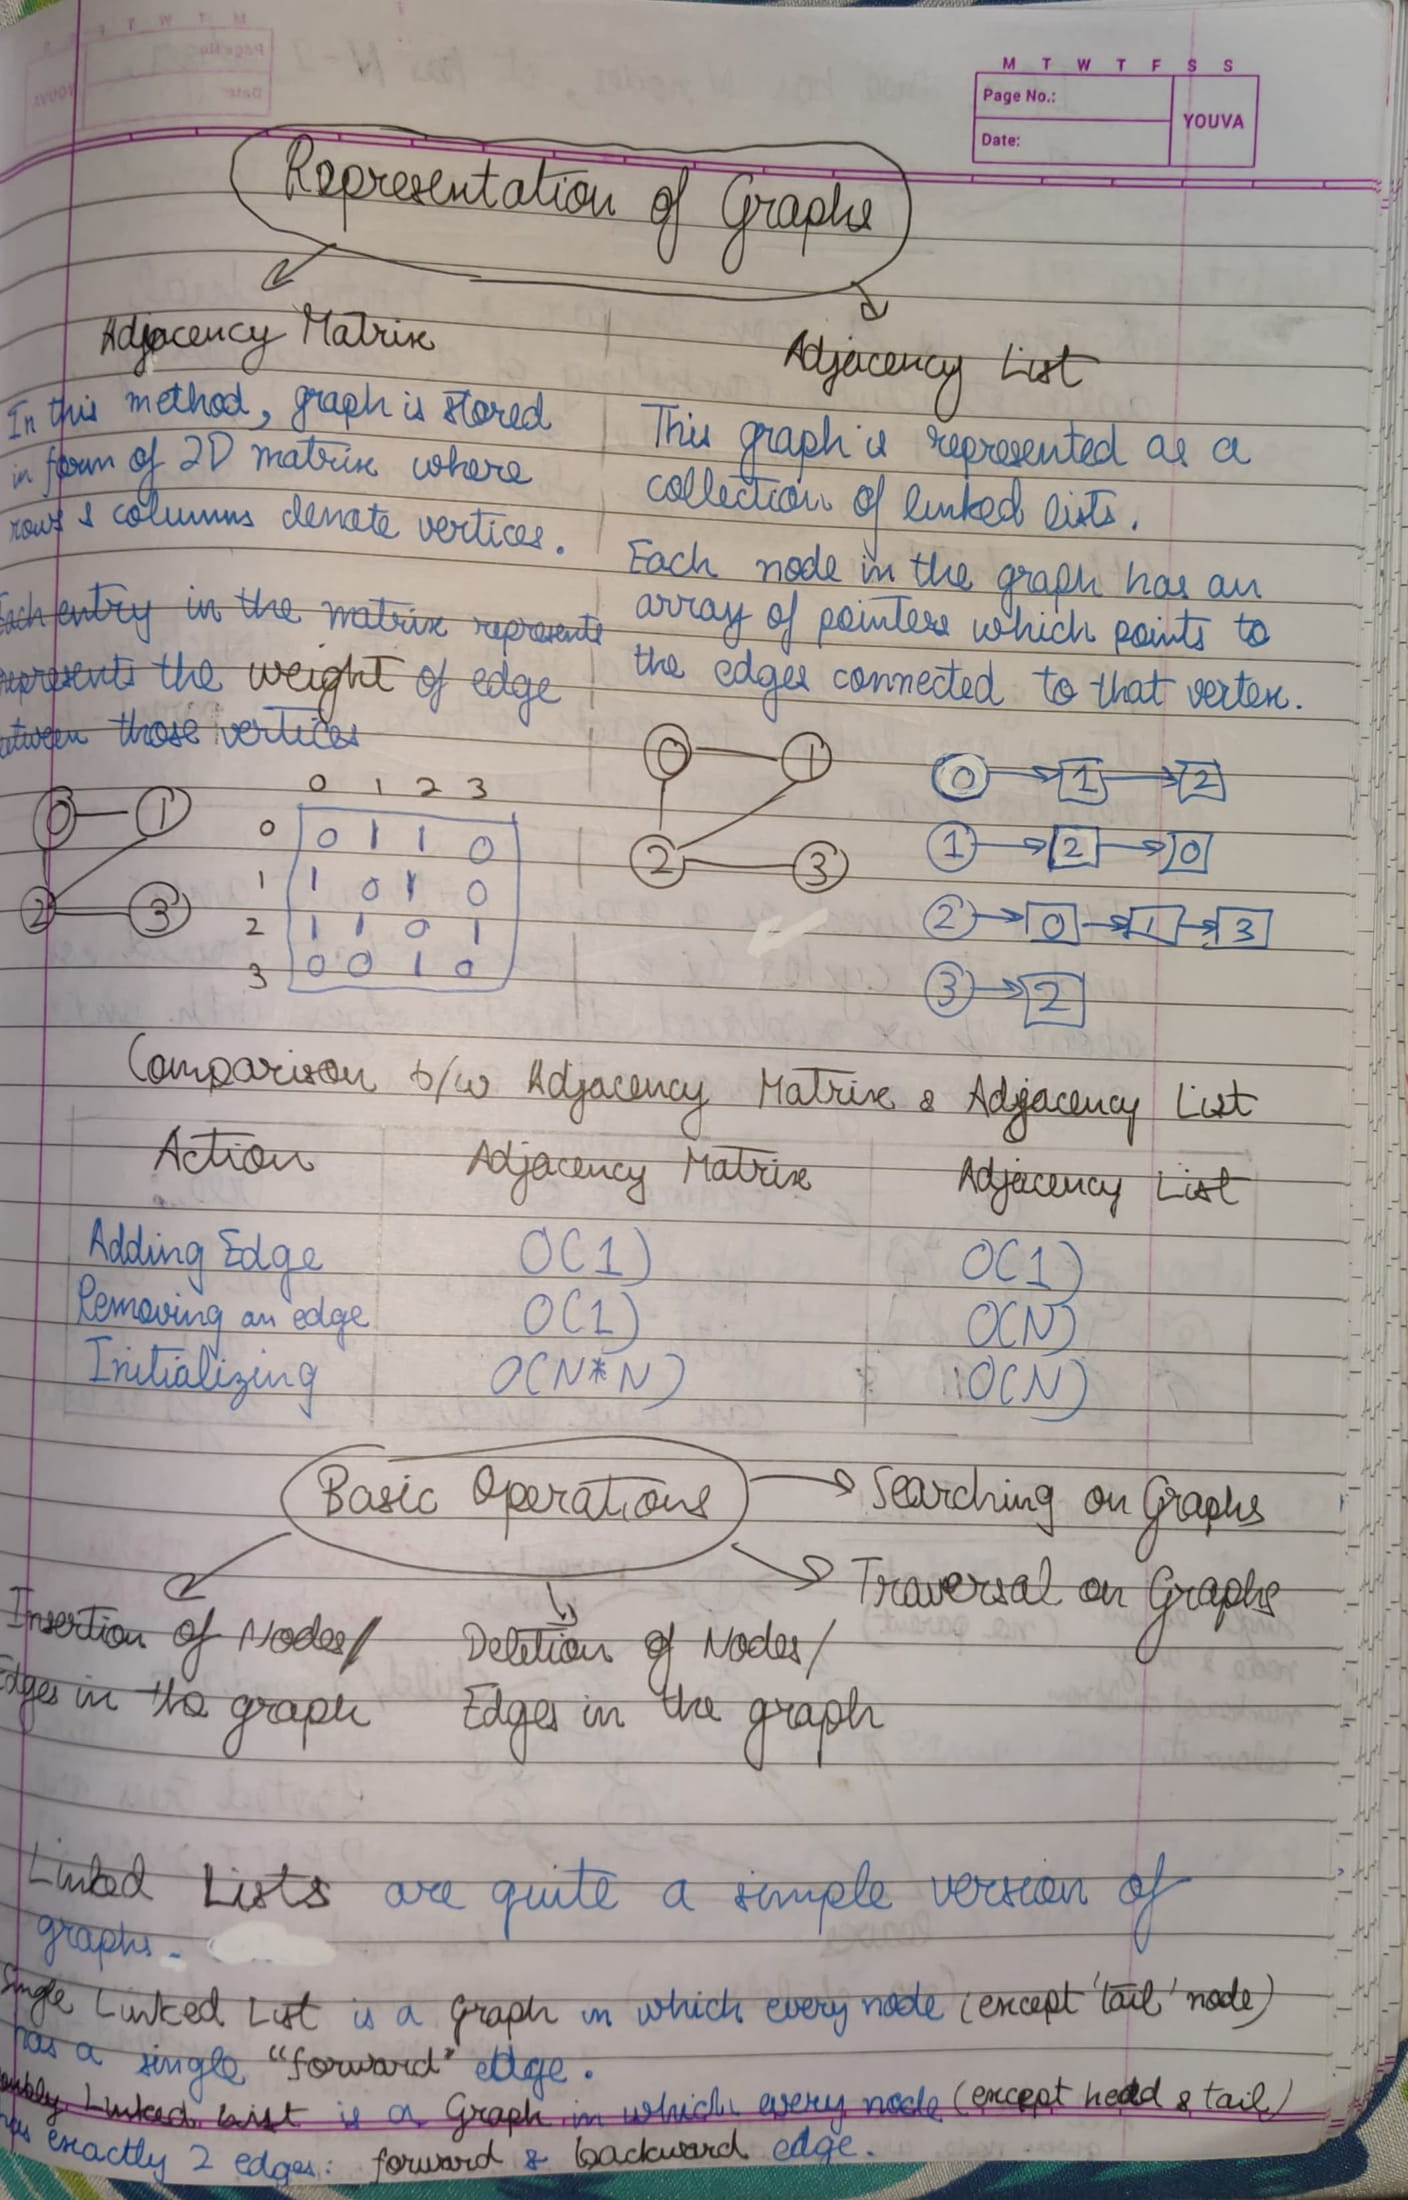 M T W T F S S
Page No.:
YOUVA
Date:
Representation of Graphs
Adjacency Matrix
In this method, graph is stored
in form of 2D matrix where
rows & columns denote vertices.
Each entry in the matrix represents
represents the weight of edge
between those vertices
0 1
2 3
0 1 2 3
0 0 1 1 0
1 1 0 1 0
2 1 1 0 1
3 0 0 1 0
Adjacency List
This graph is represented as a
collection of linked lists.
Each node in the graph has an
array of pointers which points to
the edges connected to that vertex.
0 1
2 3
0 → 1 → 2
1 → 2 → 0
2 → 0 → 1 → 3
3 → 2
Comparison b/w Adjacency Matrix & Adjacency List
Action Adjacency Matrix Adjacency List
Adding Edge O(1) O(1)
Removing an edge O(1) O(N)
Initializing O(N*N) O(N)
Basic Operations
Searching on Graphs
Traversal on Graphs
Insertion of Nodes/
Edges in the graph
Deletion of Nodes/
Edges in the graph
Linked Lists are quite a simple version of
graphs.
Single Linked List is a Graph in which every node (except 'tail' node)
has a single "forward" edge.
Doubly Linked List is a Graph in which every node (except head & tail)
has exactly 2 edges: forward & backward edge.